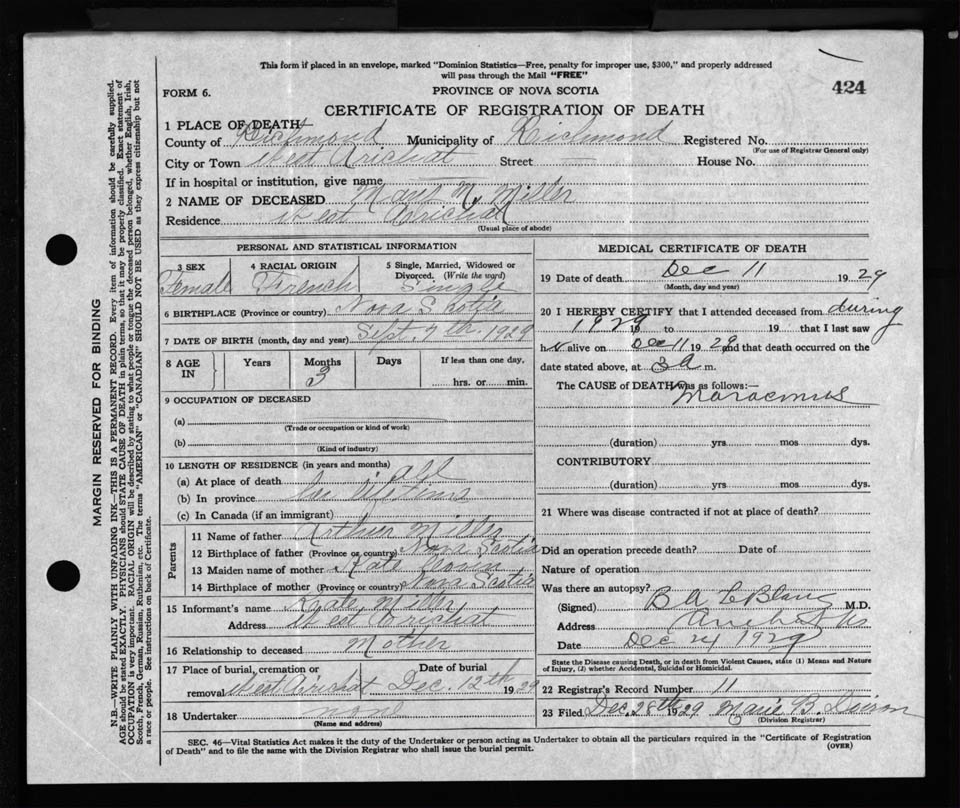 This form if placed in an envelope, marked "Dominion Statistics—Free, penalty for improper use, $300," and properly addressed
will pass through the Mail "FREE"
424
FORM 6.
PROVINCE OF NOVA SCOTIA
CERTIFICATE OF REGISTRATION OF DEATH
1 PLACE OF DEATH
County of Richmond Municipality of Richmond Registered No.
(For use of Registrar General only)
City or Town West Arichat Street House No.
If in hospital or institution, give name
2 NAME OF DECEASED M. Miller
Residence West Arichat
(Usual place of abode)
PERSONAL AND STATISTICAL INFORMATION
3 SEX 4 RACIAL ORIGIN 5 Single, Married, Widowed or
Divorced. (Write the word)
Female French Single
6 BIRTHPLACE (Province or country) Nova Scotia
7 DATE OF BIRTH (month, day and year) Sept. 7th. 1929
8 AGE IN Years Months Days If less than one day,
3 hrs. or min.
9 OCCUPATION OF DECEASED
(a)
(Trade or occupation or kind of work)
(b)
(Kind of industry)
10 LENGTH OF RESIDENCE (in years and months)
(a) At place of death all
(b) In province
(c) In Canada (if an immigrant)
Parents
11 Name of father Arthur Miller
12 Birthplace of father (Province or country) Nova Scotia
13 Maiden name of mother Kate
14 Birthplace of mother (Province or country) Nova Scotia
15 Informant's name Kate Miller
Address West Arichat
16 Relationship to deceased Mother
17 Place of burial, cremation or Date of burial
removal West Arichat Dec. 12th 1929
18 Undertaker none
(Name and address)
MEDICAL CERTIFICATE OF DEATH
19 Date of death Dec 11 1929
(Month, day and year)
20 I HEREBY CERTIFY that I attended deceased from during
1929 19 to 19 that I last saw
h alive on Dec 11 1929 and that death occurred on the
date stated above, at 3 a m.
The CAUSE of DEATH was as follows:—
Maracmus
(duration) yrs mos dys.
CONTRIBUTORY
(duration) yrs mos dys.
21 Where was disease contracted if not at place of death?
Did an operation precede death? Date of
Nature of operation
Was there an autopsy?
(Signed) B A LeBlanc M.D.
Address Arichat NS
Date Dec 24 1929
State the Disease causing Death, or in death from Violent Causes, state (1) Means and Nature
of Injury, (2) whether Accidental, Suicidal or Homicidal.
22 Registrar's Record Number 11
23 Filed Dec. 28th 1929 Marie B.
(Division Registrar)
SEC. 46—Vital Statistics Act makes it the duty of the Undertaker or person acting as Undertaker to obtain all the particulars required in the "Certificate of Registration
of Death" and to file the same with the Division Registrar who shall issue the burial permit.
(OVER)
MARGIN RESERVED FOR BINDING
N.B.—WRITE PLAINLY WITH UNFADING INK—THIS IS A PERMANENT RECORD. Every item of information should be carefully supplied.
AGE should be stated EXACTLY. PHYSICIANS should STATE CAUSE OF DEATH in plain terms, so that it may be properly classified. Exact statement of
OCCUPATION is very important. RACIAL ORIGIN will be described by stating to what people or tongue the deceased person belonged, whether English, Irish,
Scotch, French, German, Russian, Ruthenian, etc. The terms "AMERICAN" or "CANADIAN" SHOULD NOT BE USED as they express citizenship but not
a race or people. See instructions on back of Certificate.